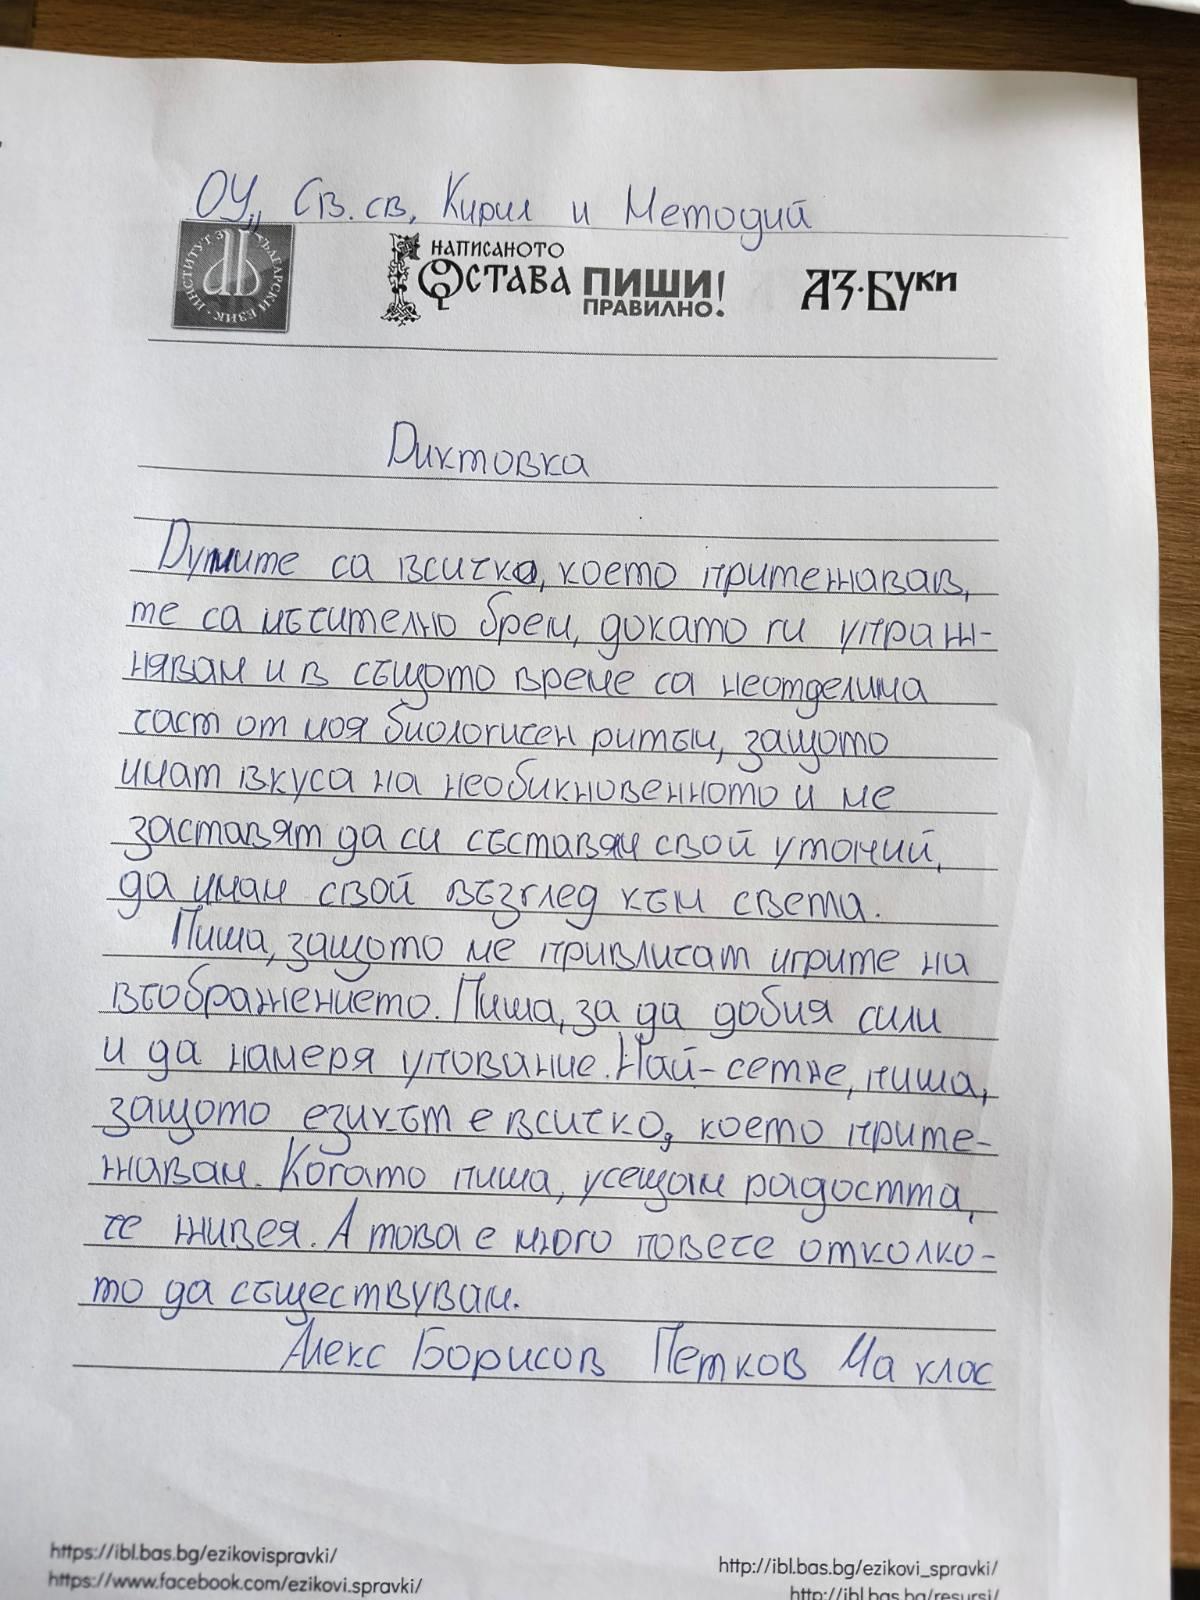 ОУ„ Св. св. Кирил и Методий
ИНСТИТУТ ЗА БЪЛГАРСКИ ЕЗИК
НАПИСАНОТО
ОСТАВА ПИШИ
ПРАВИЛНО!
АЗ·БУКИ
Диктовка
Думите са всичко, което притежавав,
те са мъчително брем, докато ги упраж-
нявам и в същото време са неотделима
част от моя биологичен ритъм, защото
имат вкуса на необикновенното и ме
заставят да си съставям свой утопий,
да имам свой възглед към света.
Пиша, защото ме привличат игрите на
въображението. Пиша, за да добия сили
и да намеря упование. Най-сетне, пиша,
защото езикът е всичко, което прите-
жавам. Когато пиша, усещам радостта,
че живея. А това е много повече отколко-
то да съществувам.
Алекс Борисов Петков
клас
https://ibl.bas.bg/ezikovispravki/
http://ibl.bas.bg/ezikovi_spravki/
https://www.facebook.com/ezikovi.spravki/
http://ibl.bas.bg/resursi/